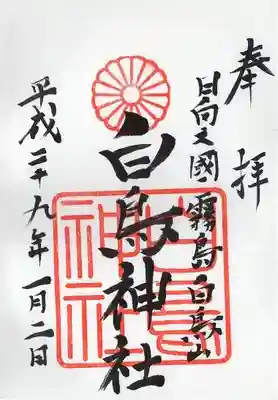 奉拝
日向之國 霧島 白鳥山
白鳥神社
平成二十九年 一月二日
白鳥神社